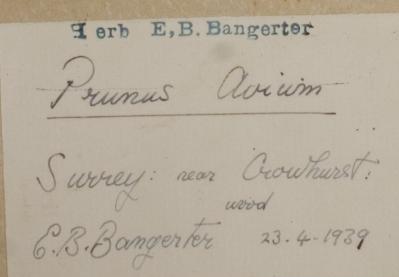 Herb E,B.Bangerter
Prunus Avium
Surrey: near Crowhurst:
wood
E.B.Bangerter 23.4-1939